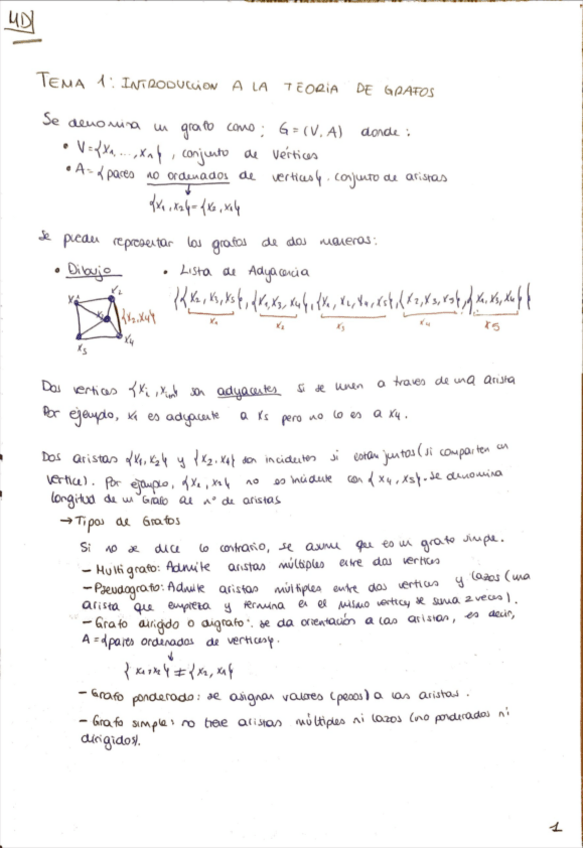 MD
TEMA 1: INTRODUCCION A LA TEORIA DE GRAFOS
Se denomina un grafo como: G=(V,A) donde:
• V={x₁,...,xₙ}, conjunto de vértices
• A={pares no ordenados de vertices}. conjunto de aristas
{x₁,x₂}={x₂,x₁}
Se pueden representar los grafos de dos maneras:
• Dibujo • Lista de Adyacencia
{{x₂,x₃,x₅},{x₁,x₃,x₄},{x₁,x₂,x₄,x₅},{x₂,x₃,x₅},{x₁,x₃,x₄}}
x₁ x₂ x₃ x₄ x₅
x₂
{x₂,x₄}
x₅ x₄
Dos vertices son adyacentes si se unen a traves de una arista
Por ejemplo, x₁ es adyacente a x₅ pero no lo es a x₄.
Dos aristas {x₁,x₂} y {x₂,x₄} son incidentes si estan juntas (si comparten un
vertice). Por ejemplo, no es incidente con {x₄,x₅}. Se denomina
longitud de un Grafo al nº de aristas
→ Tipos de Grafos
Si no se dice lo contrario, se asume que es un grafo simple.
- Multigrafo: Admite aristas múltiples entre dos vertices
- Pseudografo: Admite aristas múltiples entre dos vertices y lazos (una
arista que empieza y termina en el mismo vertice, se suma 2 veces).
- Grafo dirigido o digrafo: se da orientación a las aristas, es decir,
A={pares ordenados de vertices}.
{x₁,x₂} ≠ {x₂,x₁}
- Grafo ponderado: se asignan valores (pesos) a las aristas.
- Grafo simple: no tiene aristas múltiples ni lazos (no ponderados ni
dirigidos).
1